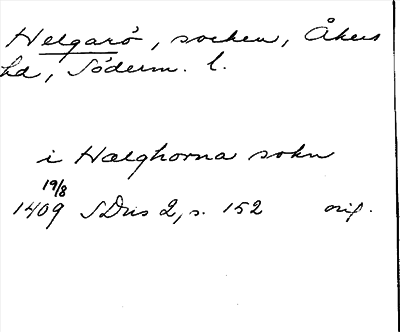 Helgarö, socken, Åkers
hd, Söderm. l.
i Hælghorna sokn
19/8
1409 SDns 2, s. 152 orig.